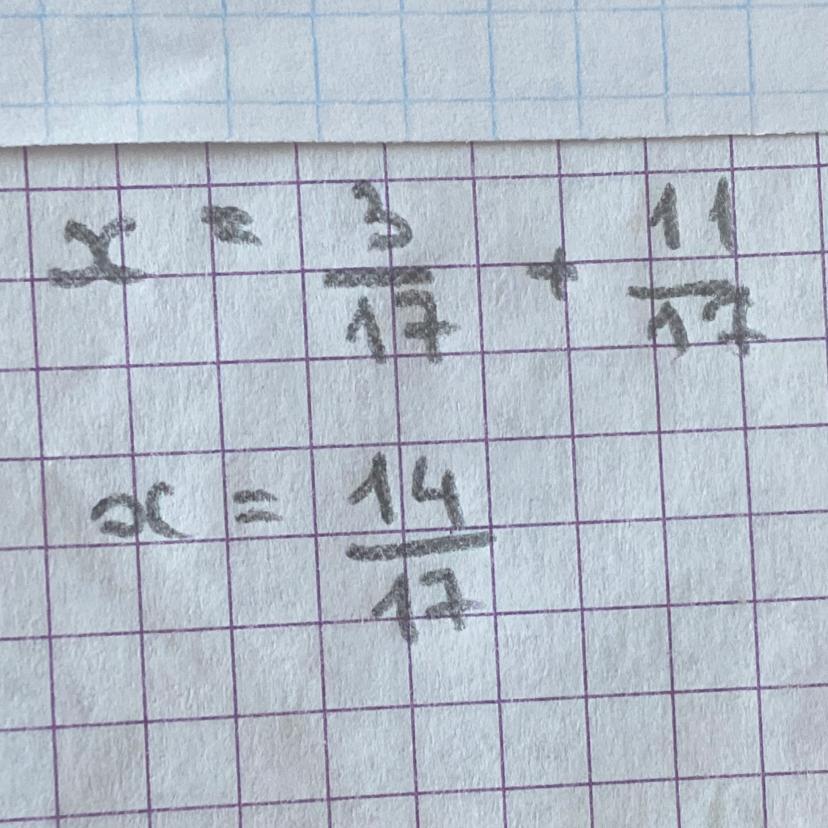 x = 3/17 + 11/17
x = 14/17